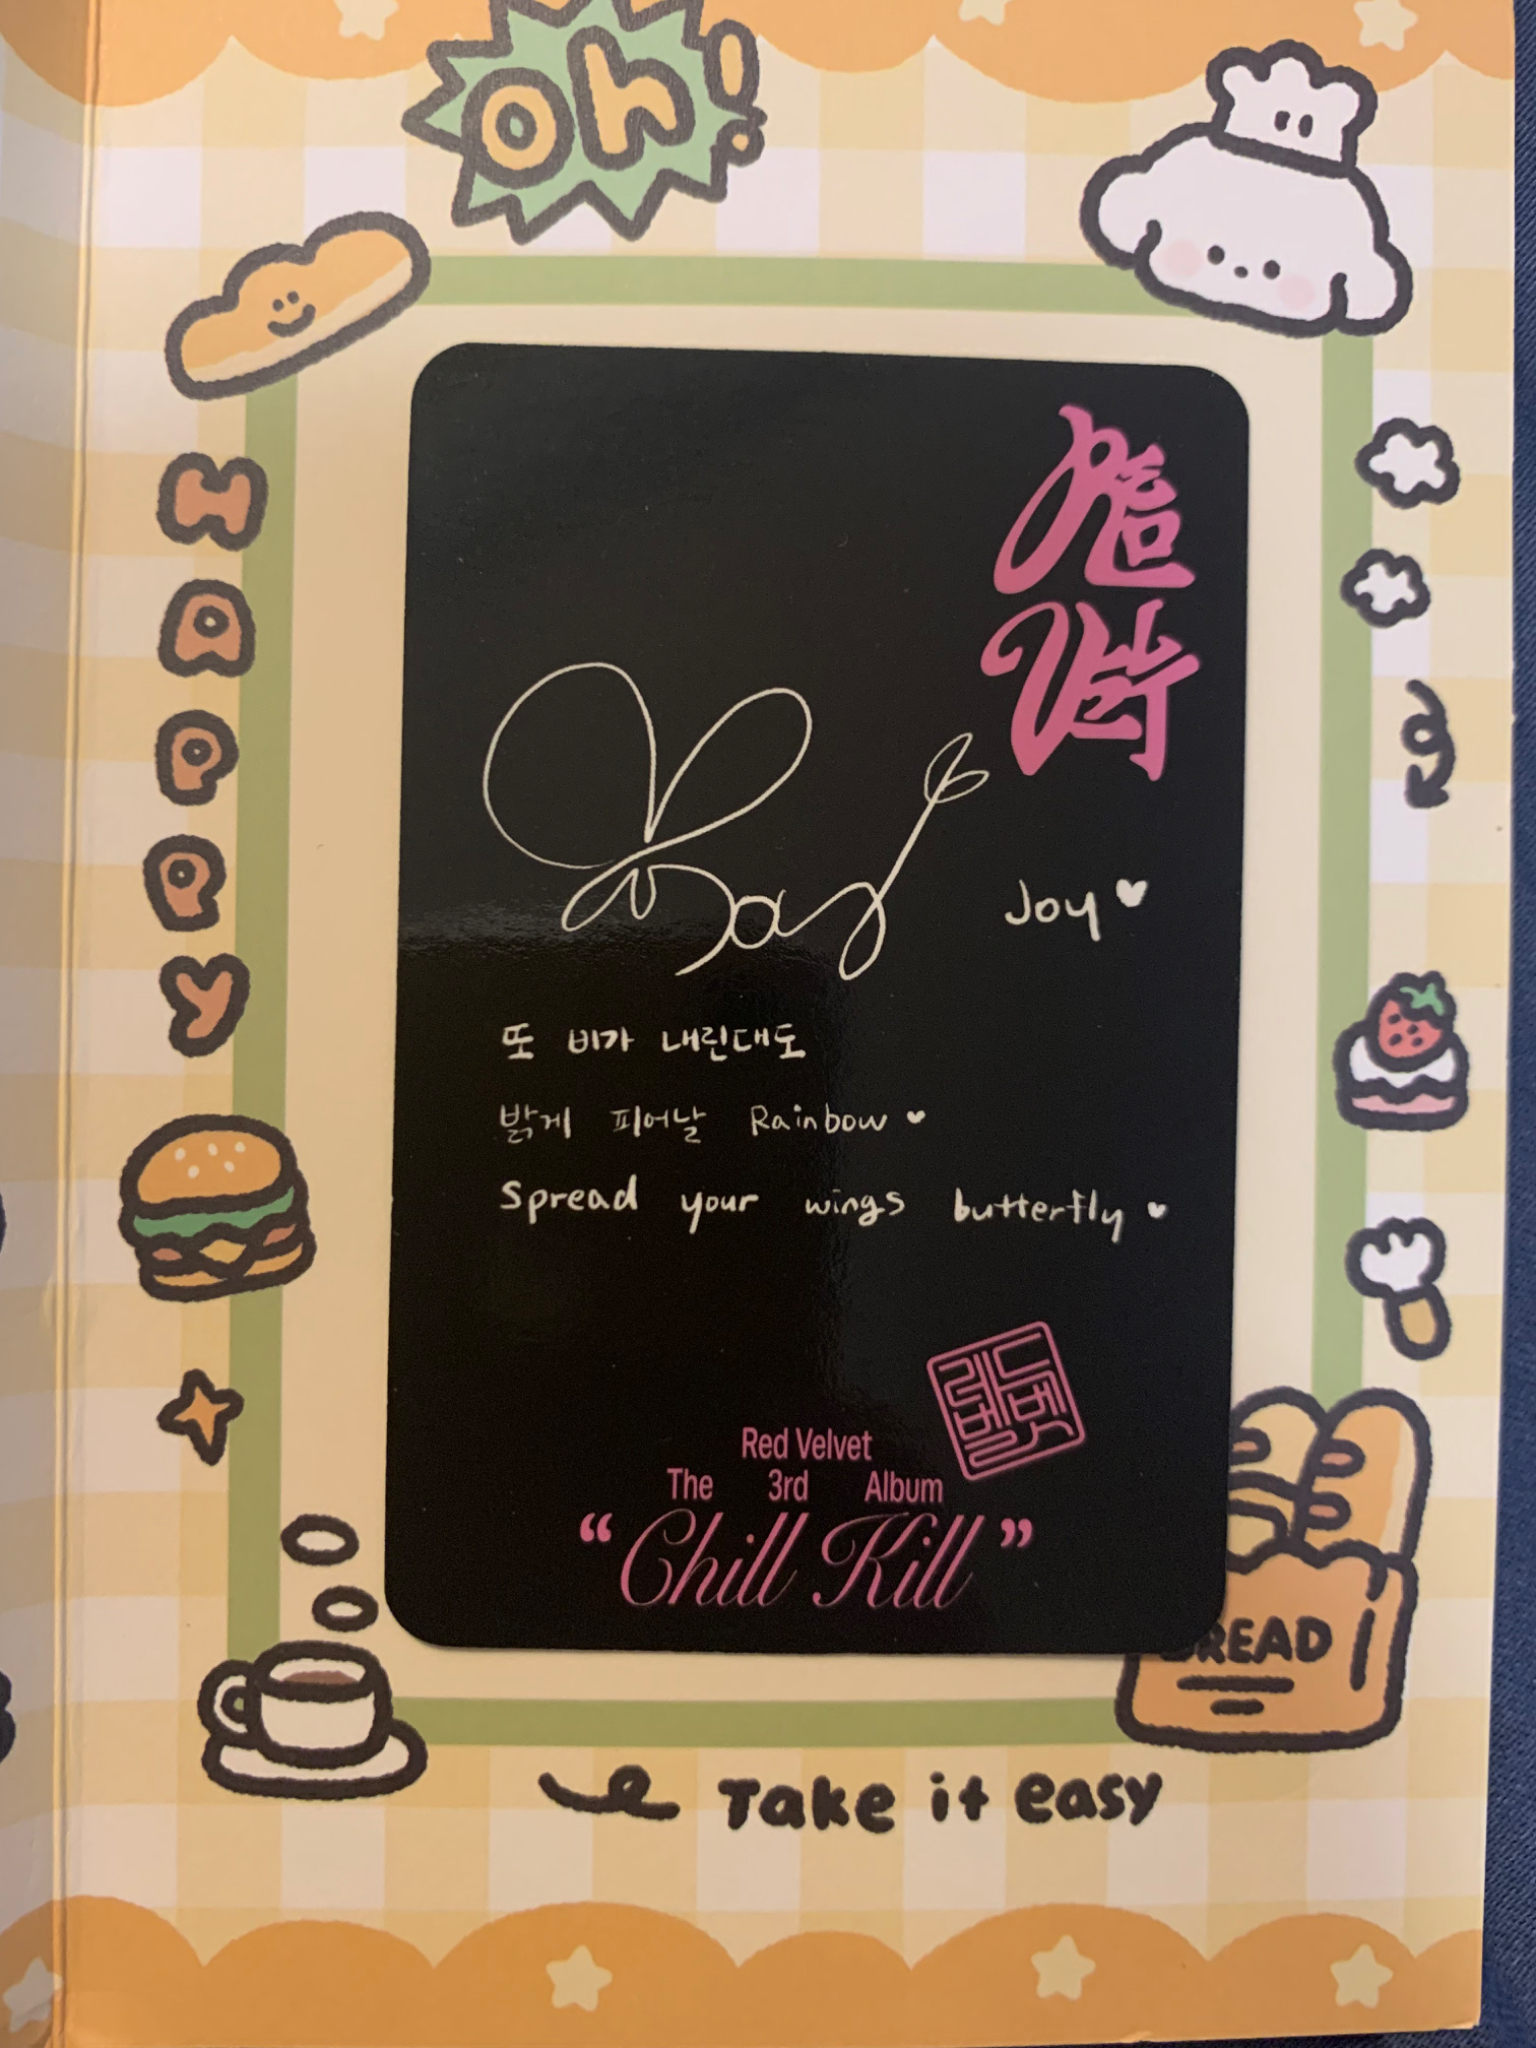 oh!
HAPPY
Joy♥
또 비가 내린대도
밝게 피어날 Rainbow ♥
Spread your wings butterfly ♥
레드
벨벳
Red Velvet
The 3rd Album
“Chill Kill”
READ
Take it easy